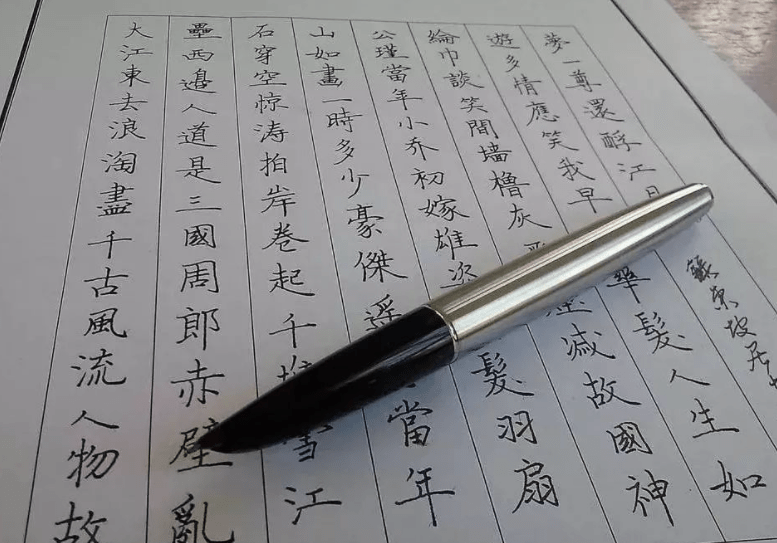 大江東去浪淘盡千古風流人物故
壘西邊人道是三國周郎赤壁亂
石穿空惊涛拍岸卷起千堆雪江
山如畫一時多少豪傑遥當年
公瑾當年小乔初嫁雄姿髮羽扇
綸巾談笑間墙櫓灰減故國神
遊多情應笑我早華髮人生如
夢一尊還酹江月
蘇東坡居